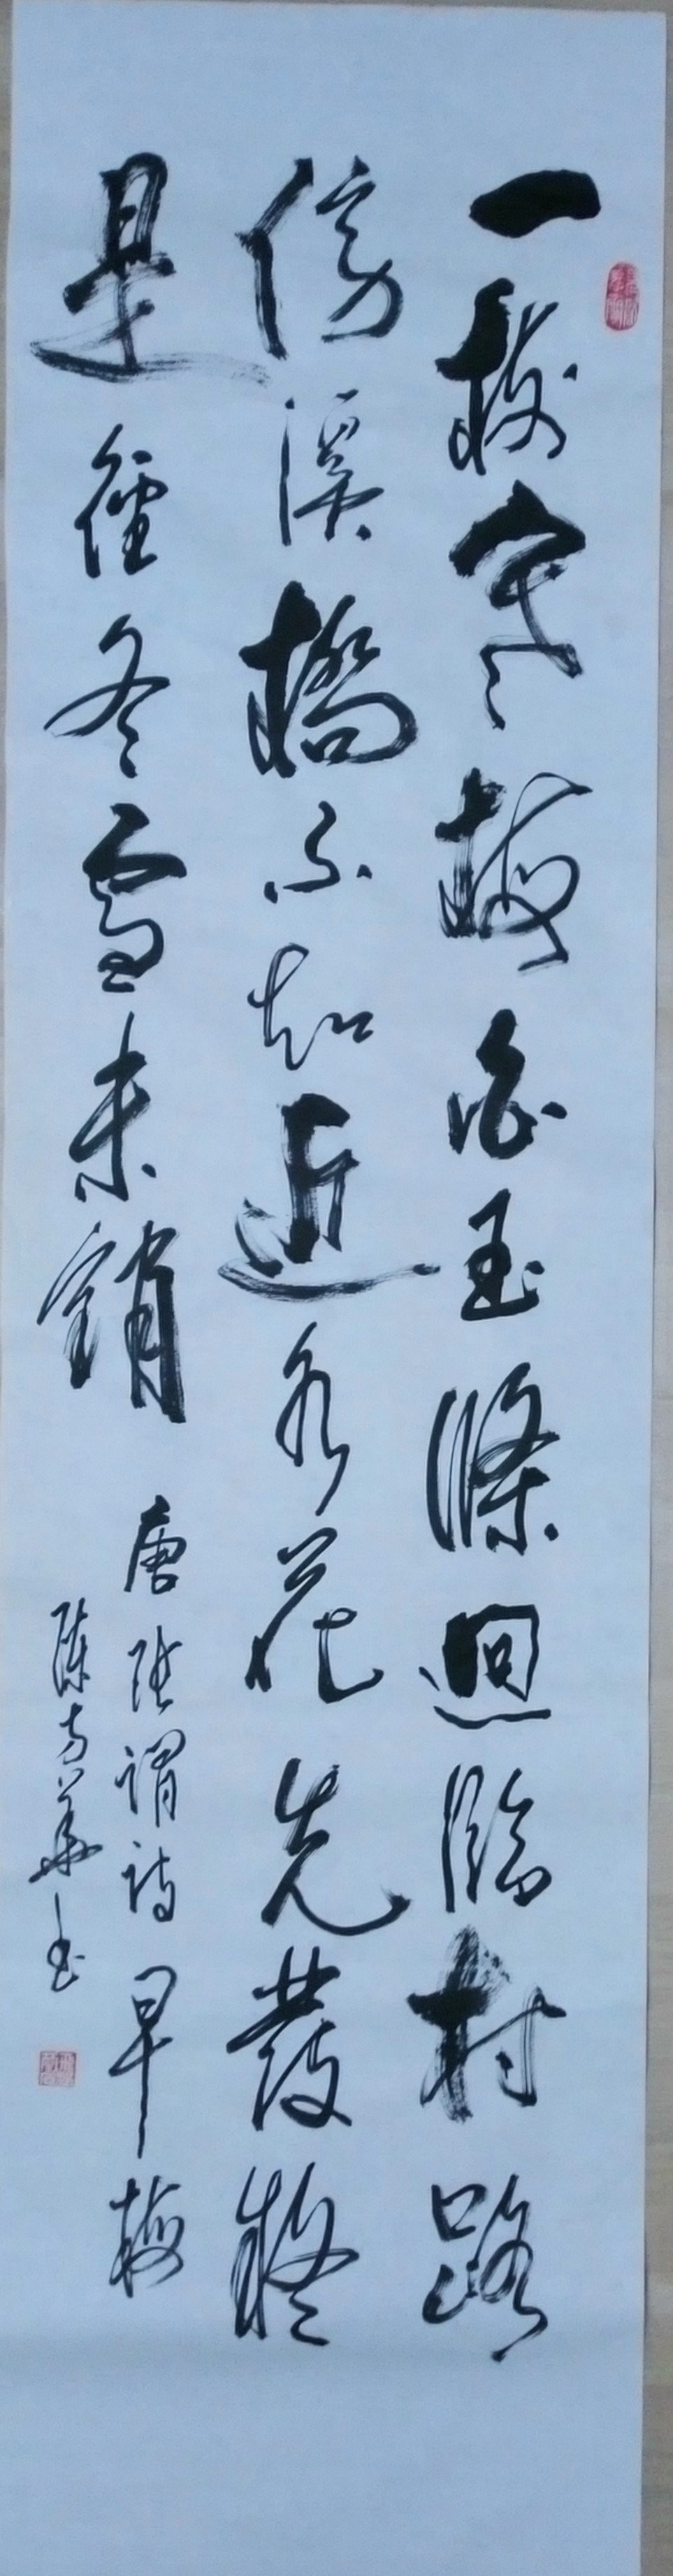 一樹寒梅白玉條迥臨村路
傍溪橋不知近水花先發疑
是經冬雪未銷
唐張謂詩早梅
陳方華書